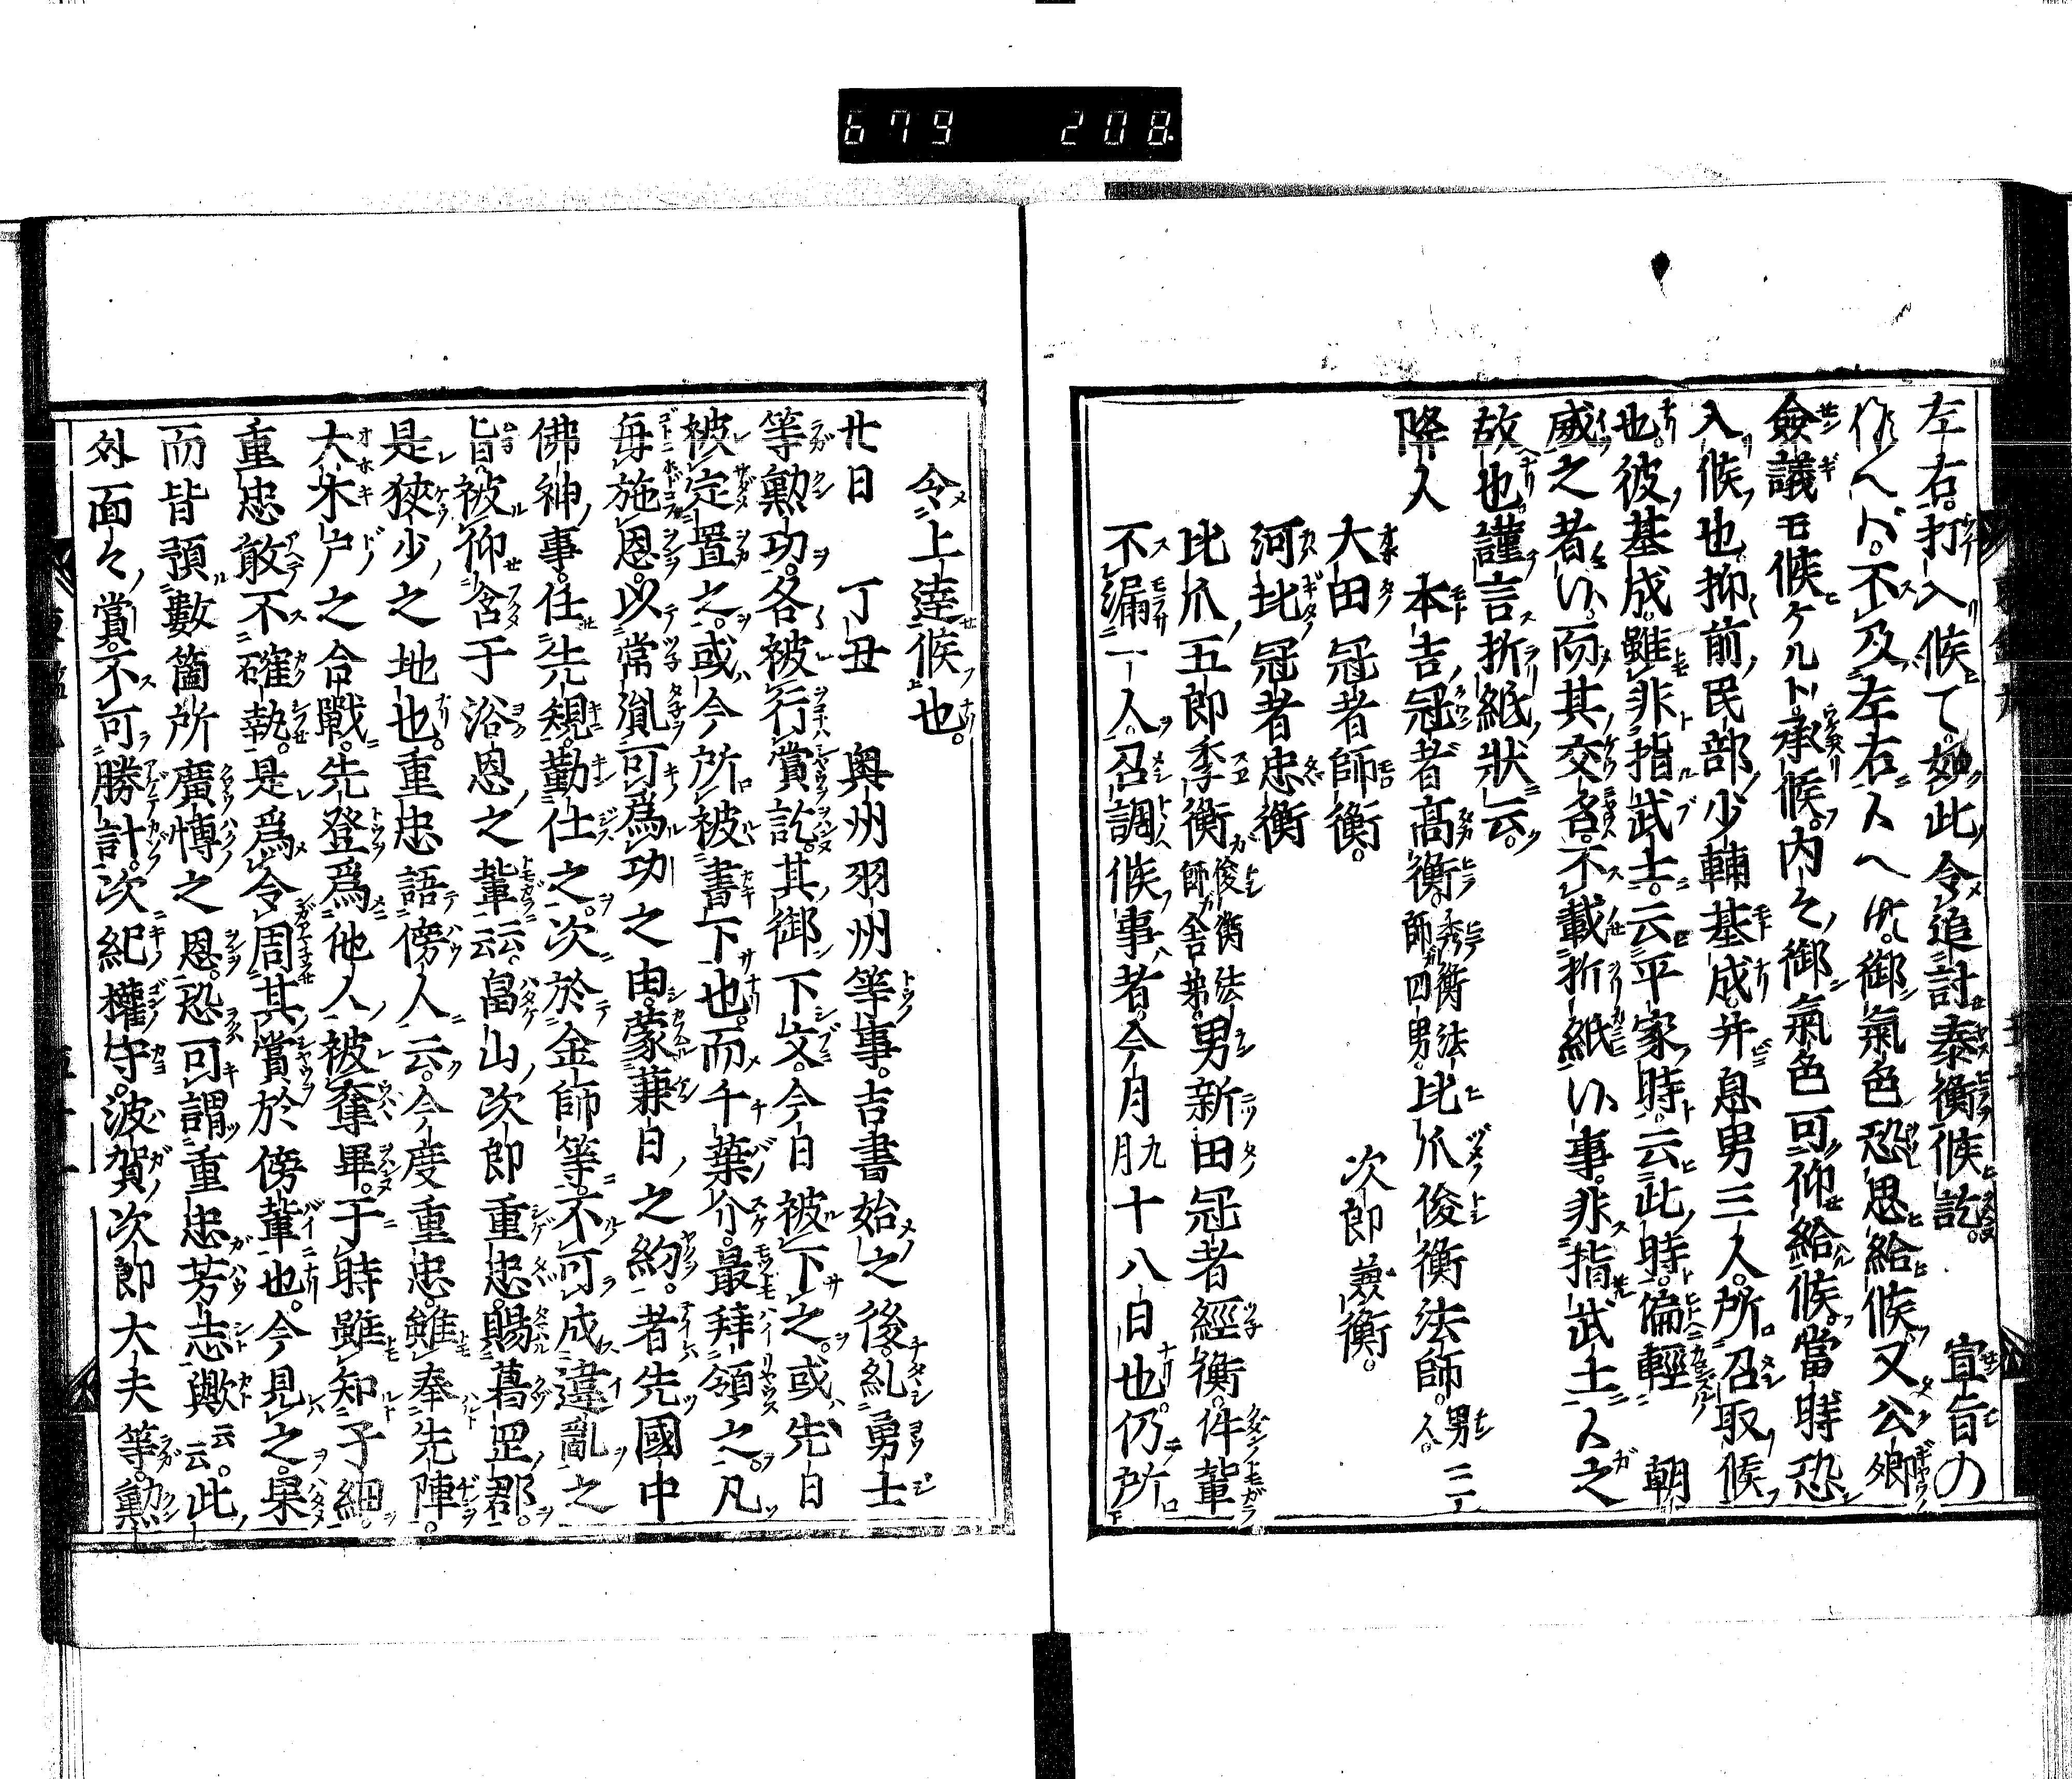 679 208
左右。打入候て。如此令追討泰衡候訖。 宣旨の
後へハ。不及左右人へ候。御氣色恐思給候又公卿
僉議モ候ケルト承候。内々御氣色可仰給候。當時恐
入候也。抑前民部少輔基成。并息男三人。所召取候
也。彼基成。雖非指武士。云平家時。云此時。偏輕 朝
威之者ハ。而其交名。不載折紙ハ事。非指武士人之
故也。謹言折紙狀云。
降人 本吉冠者髙衡。秀衡法師四男。比爪俊衡法師。男三人。
大田冠者師衡。 次郎兼衡。
河北冠者忠衡
比爪五郎季衡俊衡法師舍弟。男新田冠者經衡。件輩
不漏一人。召調候事者。今月九月十八日也。仍所
令上達候也。
廿日 丁丑 奥州羽州等事。吉書始之後。糺勇士
等勲功。各被行賞訖。其御下文。今日被下之。或先日
被定置之。或今所被書下也。而千葉介。最拜領之。凡
毎施恩。以常胤可爲功之由。蒙兼日之約。者先國中
佛神事。任先規。勤仕之。次於金師等。不可成違亂之
旨。被仰含于浴恩之輩云。畠山次郎重忠。賜葛罡郡。
是狹少之地也。重忠語傍人云。今度重忠。雖奉先陣。
大木戸之合戰。先登爲他人被奪畢。于時雖知子細。
重忠敢不確執。是爲令周其賞於傍輩也。今見之。果
而皆預數箇所廣博之恩。恐可謂重忠芳志歟云云。此
外面々賞。不可勝計。次紀權守。波賀次郎大夫等。勲